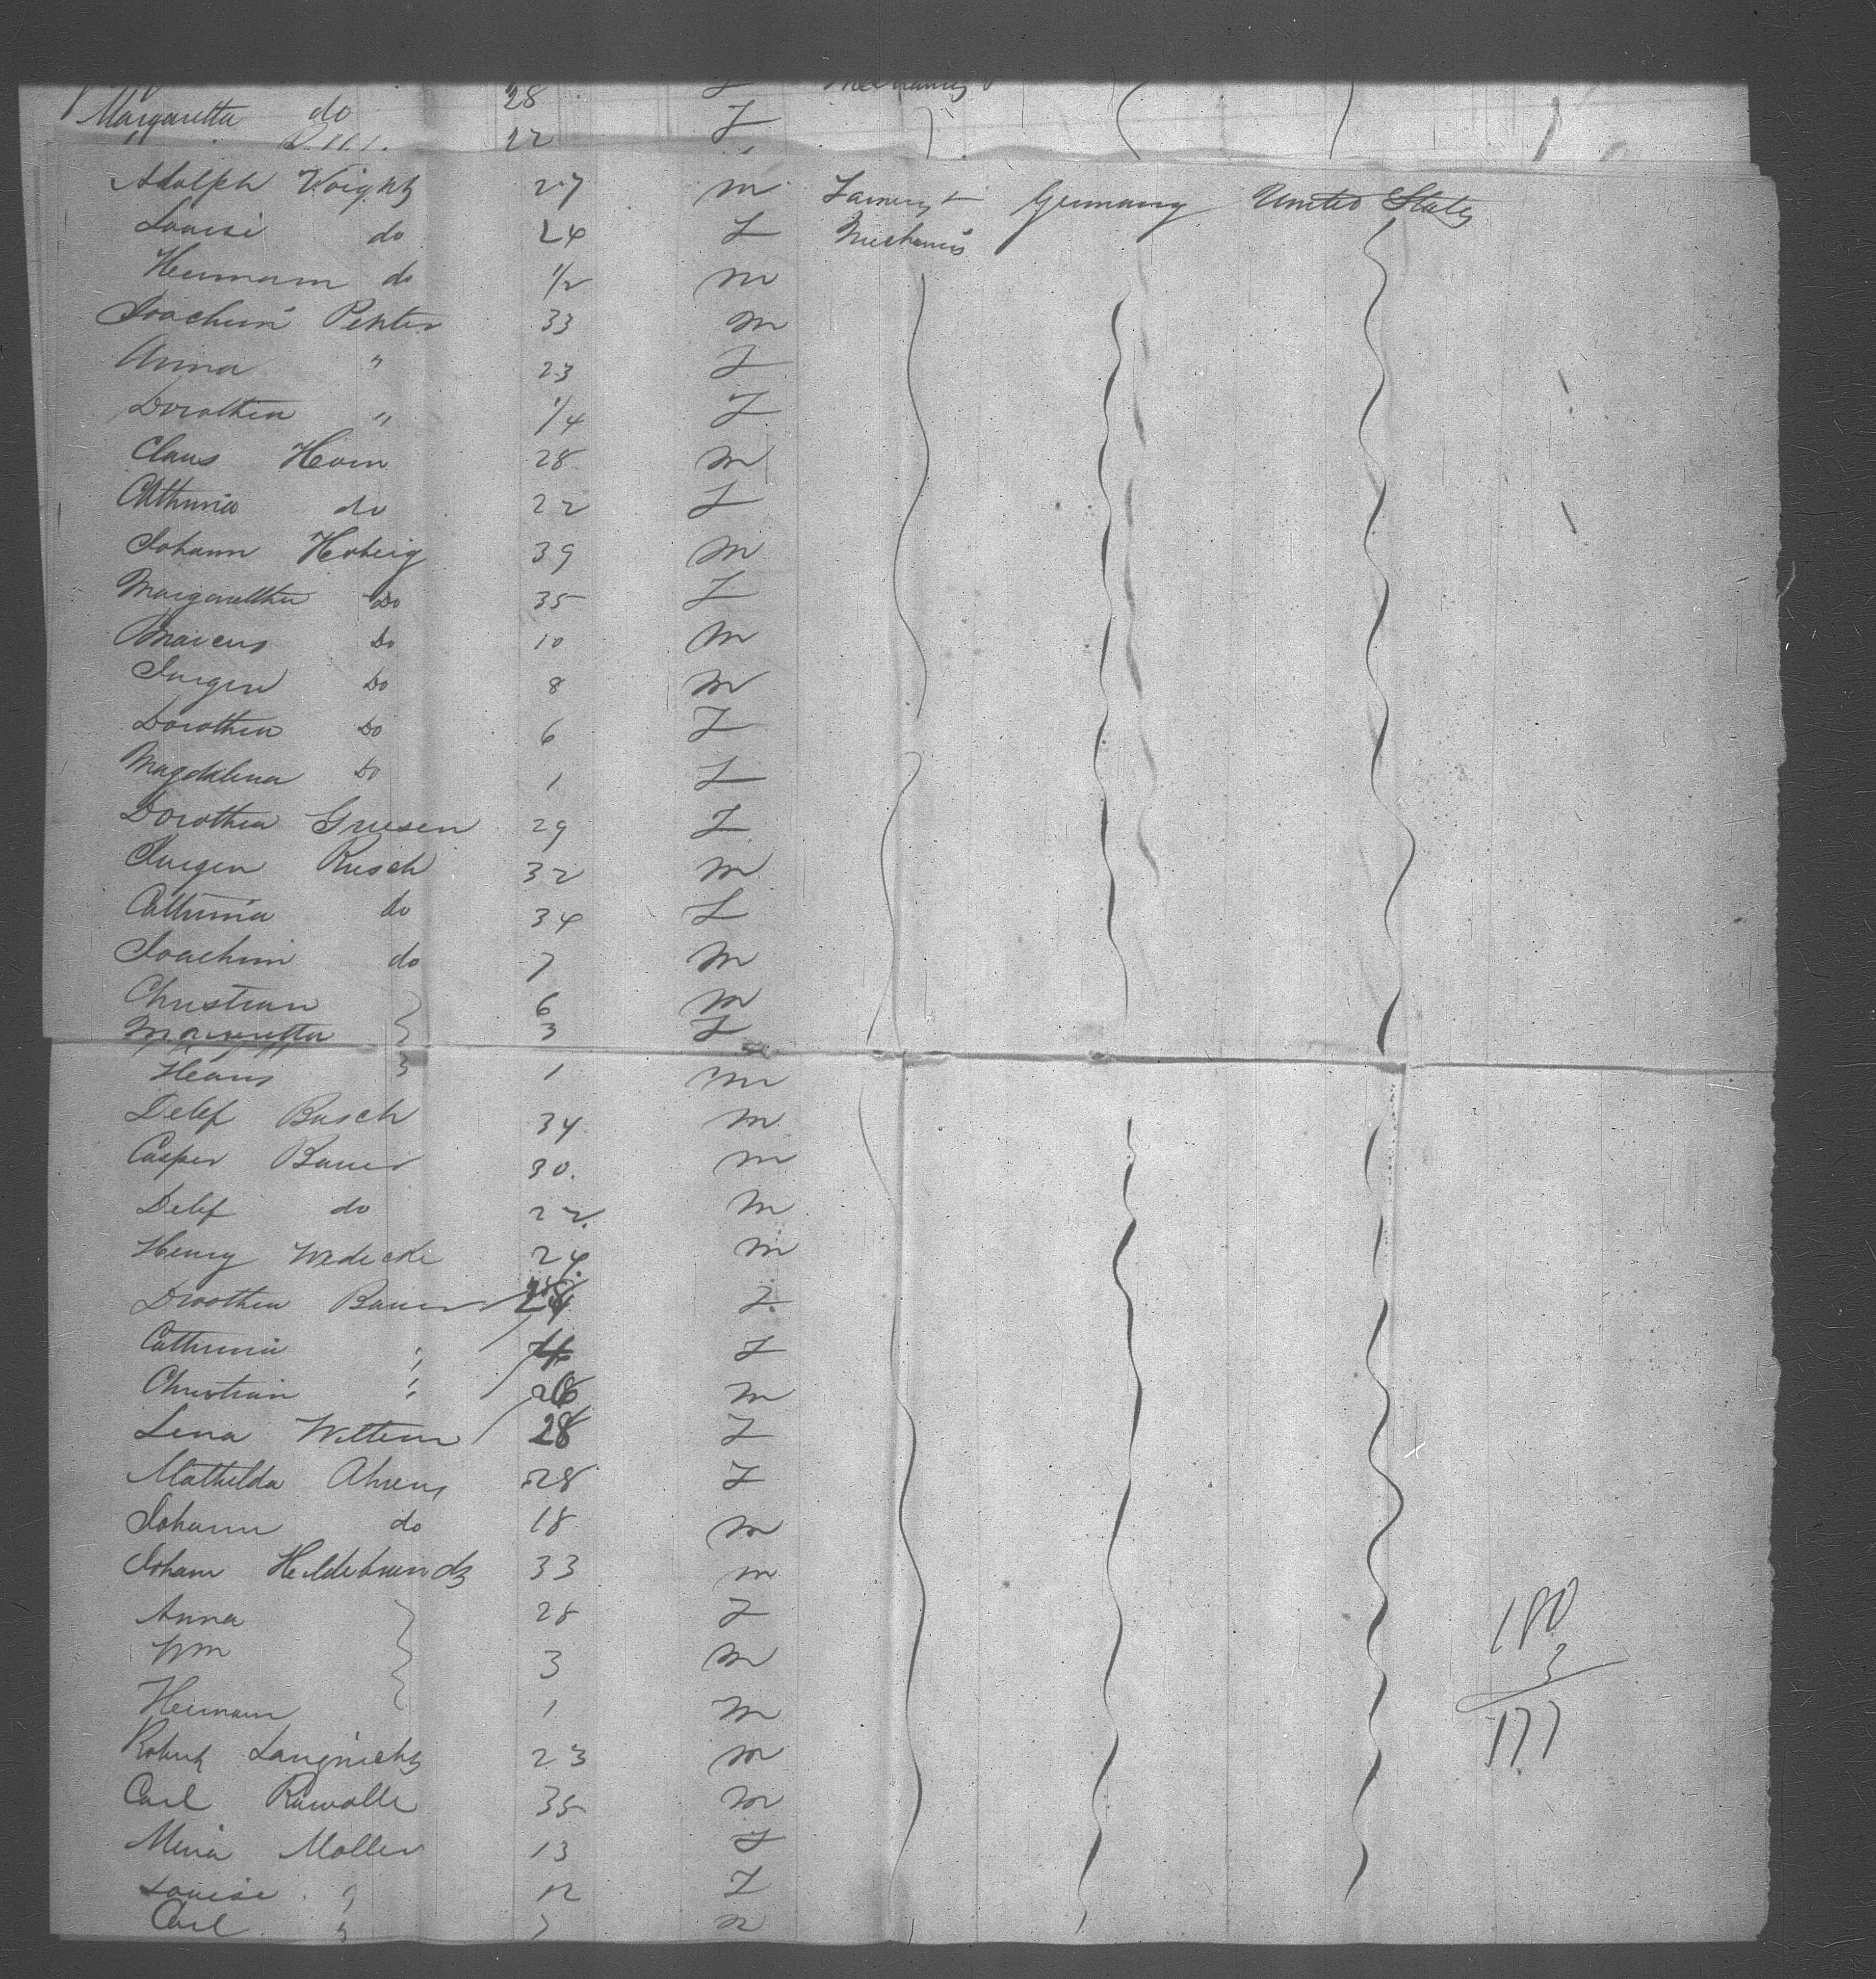 28 F Mechanics
Margaretta do 22 F
Adolph Voights 27 m Farmers + Germany United States
Louise do 24 F Mechanics
Hermann do 1/2 m
Joachim Penter 33 m
Anna " 23 F
Dorothea " 1/4 F
Claus Hein 28 m
Catharina do 22 F
Johann Hobeig 39 m
Margaretha Do 35 F
Marcus Do 10 m
Jurgen Do 8 m
Dorothea Do 6 F
Magdalena Do 1 F
Dorothea Griesen 29 F
Jurgen Rusch 32 m
Cathrina do 34 F
Joachim do 7 m
Christian 6 m
Margretta 3 F
Hans 1 m
Delef Busch 34 m
Casper Bauer 30. m
Delef do 22 m
Henry Wedecke 24. m
Dorothea Bauer 24 F
Cathrina " 4 F
Christian " 26 m
Lena Wittern 28 F
Mathilda Ahrens 28 F
Johann do 18 m
Joham Heildebrandz 33 m
Anna 28 F
Wm 3 m
Hermann 1 m
Robert Langniehz 23 m
Carl Rawolle 35 m
Mina Moller 13 F
Louise " 12 F
Carl " 7 m
180
3
177